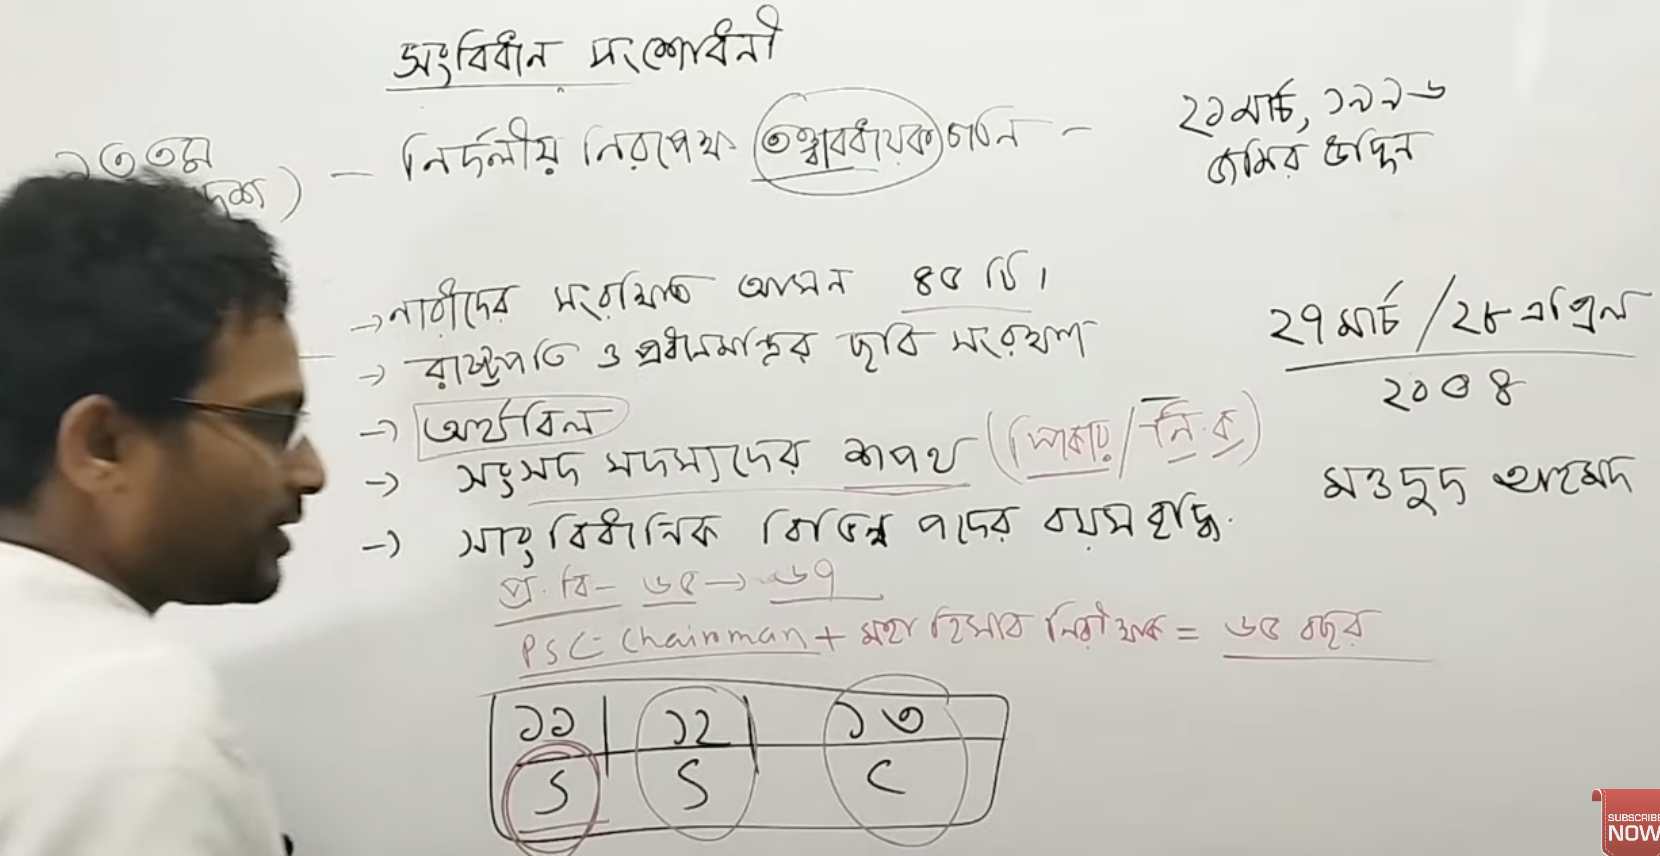 সংবিধান সংশোধনী
১৩তম - নির্দলীয় নিরপেক্ষ তত্ত্বাবধায়ক গঠন -
২১ মার্চ, ১৯৯৬
জমির উদ্দিন
→ নারীদের সংরক্ষিত আসন ৪৫ টি।
→ রাষ্ট্রপতি ও প্রধানমন্ত্রির ছবি সংরক্ষণ
→ অর্থবিল
→ সংসদ সদস্যদের শপথ (স্পিকার/নি.ক)
→ সাংবিধানিক বিভিন্ন পদের বয়স বৃদ্ধি.
২৭ মার্চ / ২৮ এপ্রিল
২০০৪
মওদুদ আহমদ
প্র. বি - ৬৫ → ৬৭
PSC Chairman + মহা হিসাব নিরীক্ষক = ৬৫ বছর
১১ ১২ ১৩
S S C
SUBSCRIBE
NOW